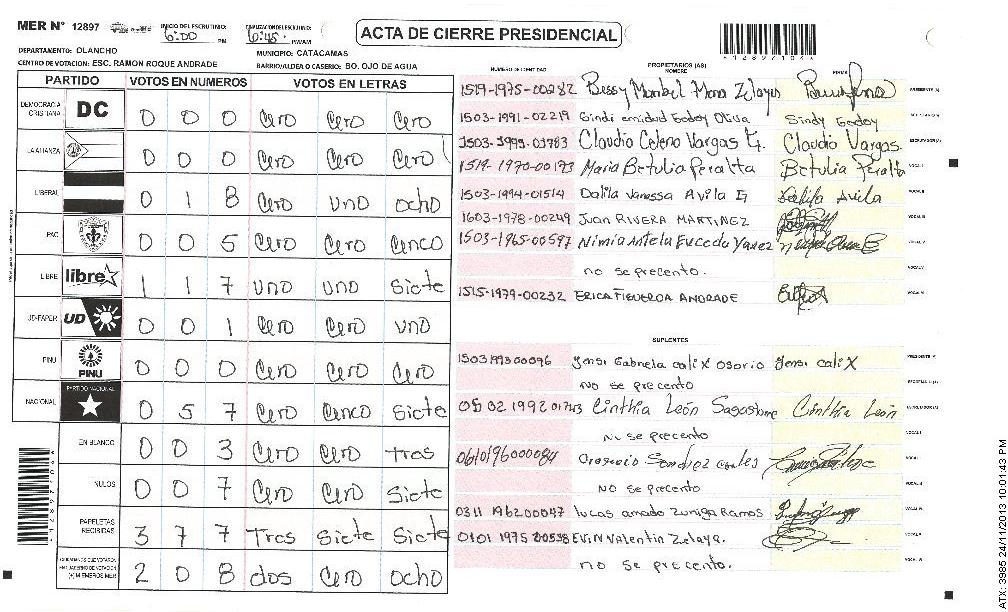 MER N° 12897
INICIO DEL ESCRUTINIO:
6:00 PM
FINALIZACION DEL ESCRUTINIO:
6:45 PM/AM
ACTA DE CIERRE PRESIDENCIAL
DEPARTAMENTO: OLANCHO
MUNICIPIO: CATACAMAS
CENTRO DE VOTACION: ESC. RAMON ROQUE ANDRADE
BARRIO/ALDEA O CASERIO: BO. OJO DE AGUA
PARTIDO VOTOS EN NUMEROS VOTOS EN LETRAS
DEMOCRACIA CRISTIANA DC 0 0 0 Cero Cero Cero
LA ALIANZA 0 0 0 Cero Cero Cero
LIBERAL 0 1 8 Cero uno ocho
PAC 0 0 5 Cero Cero Cenco
LIBRE libre 1 1 7 uno uno Siete
UD-FAPER UD 0 0 1 Cero Cero uno
PINU PINU 0 0 0 Cero Cero Cero
NACIONAL PARTIDO NACIONAL 0 5 7 Cero Cenco Siete
EN BLANCO 0 0 3 Cero Cero tres
NULOS 0 0 7 Cero Cero Siete
PAPELETAS RECIBIDAS 3 7 7 Tres Siete Siete
2 0 8 dos Cero ocho
NUMERO DE IDENTIDAD PROPIETARIOS (AS) NOMBRE FIRMA
1519-1975-00282 Bessy Maribel Mena Zelaya
1503-1991-02219 Sindi enidud Godoy Oliva Sindy Godoy
1503-1993-03783 Claudio Celeno Vargas G. Claudio Vargas
1519-1970-00193 Maria Betulia Peralta Betulia Peralta
1503-1994-01514 Dalila Vanessa Avila G Dalila Avila
1603-1978-00249 Juan RIVERA MARTINEZ
1503-1965-00597 Nimia Antela Euceda Yanez
no se precento.
1515-1979-00232 ERICA FIGUEROA ANDRADE
SUPLENTES
1503199300096 Jensi Gabriela calix Osorio Jensi calix
no se precento
Cinthia León Sagastume Cinthia León
no se precento
0610196000084 Sanchez
no se precento
0311 196200047 Lucas amado Zuniga Ramos
0101 1975 00538 Evin Valentin Zelaya.
no se precento.
ATX: 3985 24/11/2013 10:01:43 PM